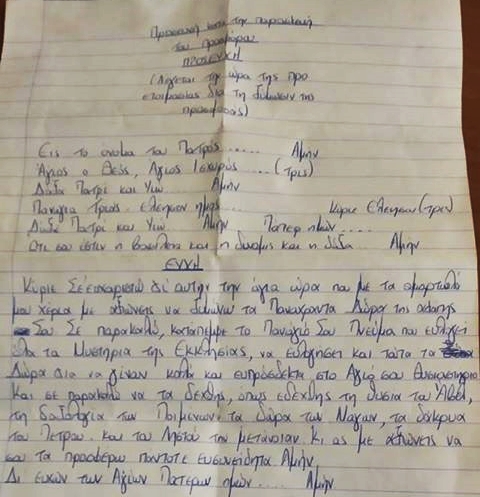 Προσευχή κατα την παρασκευή
του προσφόρου
ΠΡΟΣΕΥΧΗ
(Λέγεται την ώρα της προ
ετοιμασίας δια τη ζύμωσιν της
προσφοράς)
Εις το ονομα του Πατρός ..... Αμήν
Άγιος ο Θεός, Άγιος Ισχυρός ..... (Τρις)
Δόξα Πατρί και Υιω. Αμήν
Παναγια Τριας. Ελεησον ημας. Κύριε Ελεησον (τρις)
Δόξα Πατρί και Υιω. Αμήν Πατερ ημών.....
Οτι σου εστιν η Βασιλεια και η δυναμις και η δόξα. Αμήν
ΕΥΧΗ
Κύριε Σε ευχαριστώ δι' αυτην την άγια ώρα που με τα αμαρτωλά
μου χέρια με αξιώνεις να ζυμώνω τα Παναχραντα Δώρα της αγαπης
Σου. Σε παρακαλώ, καταπεμψε το Παναγιο Σου Πνεύμα που ευλογει
όλα τα Μυστήρια της Εκκλησίας, να ευλογησει και ταυτα τα
Δώρα δια να γίνουν καλα και ευπρόσδεκτα στο Αγιό σου Θυσιαστήριο
Και σε παρακαλώ να τα δεχθης, όπως εδεχθης τη θυσια του Άβελ,
τη δοξολογια των Ποιμενων. τα δώρα των Μαγων, τα δάκρυα
του Πετρου. και του Ληστού την μετάνοιαν. Κι ας με αξιώνεις να
σου τα προσφερω παντοτε ευσυνείδητα Αμήν.
Δι ευχών των Αγίων Πατερων ημών .... Αμήν